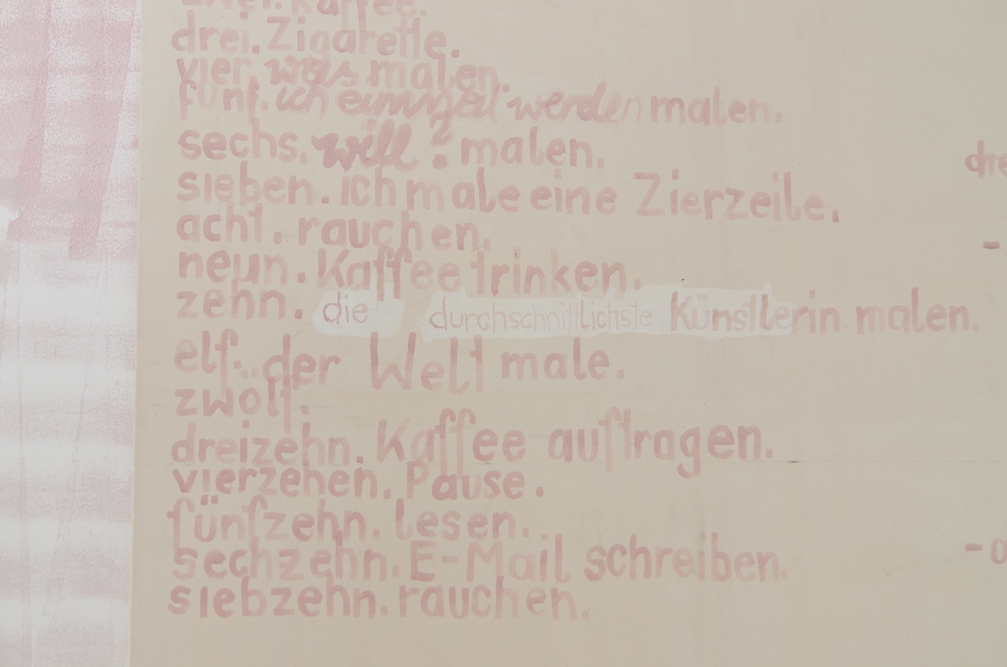 zwei. Kaffee.
drei. Zigarette.
vier. was malen.
fünf. ich einmal werden malen.
sechs. will? malen.
sieben. ich male eine Zierzeile.
acht. rauchen.
neun. Kaffee trinken.
zehn. die durchschnittlichste Künstlerin malen.
elf. der Welt male.
zwölf.
dreizehn. Kaffee auftragen.
vierzehen. Pause.
fünfzehn. lesen.
sechzehn. E-Mail schreiben.
siebzehn. rauchen.